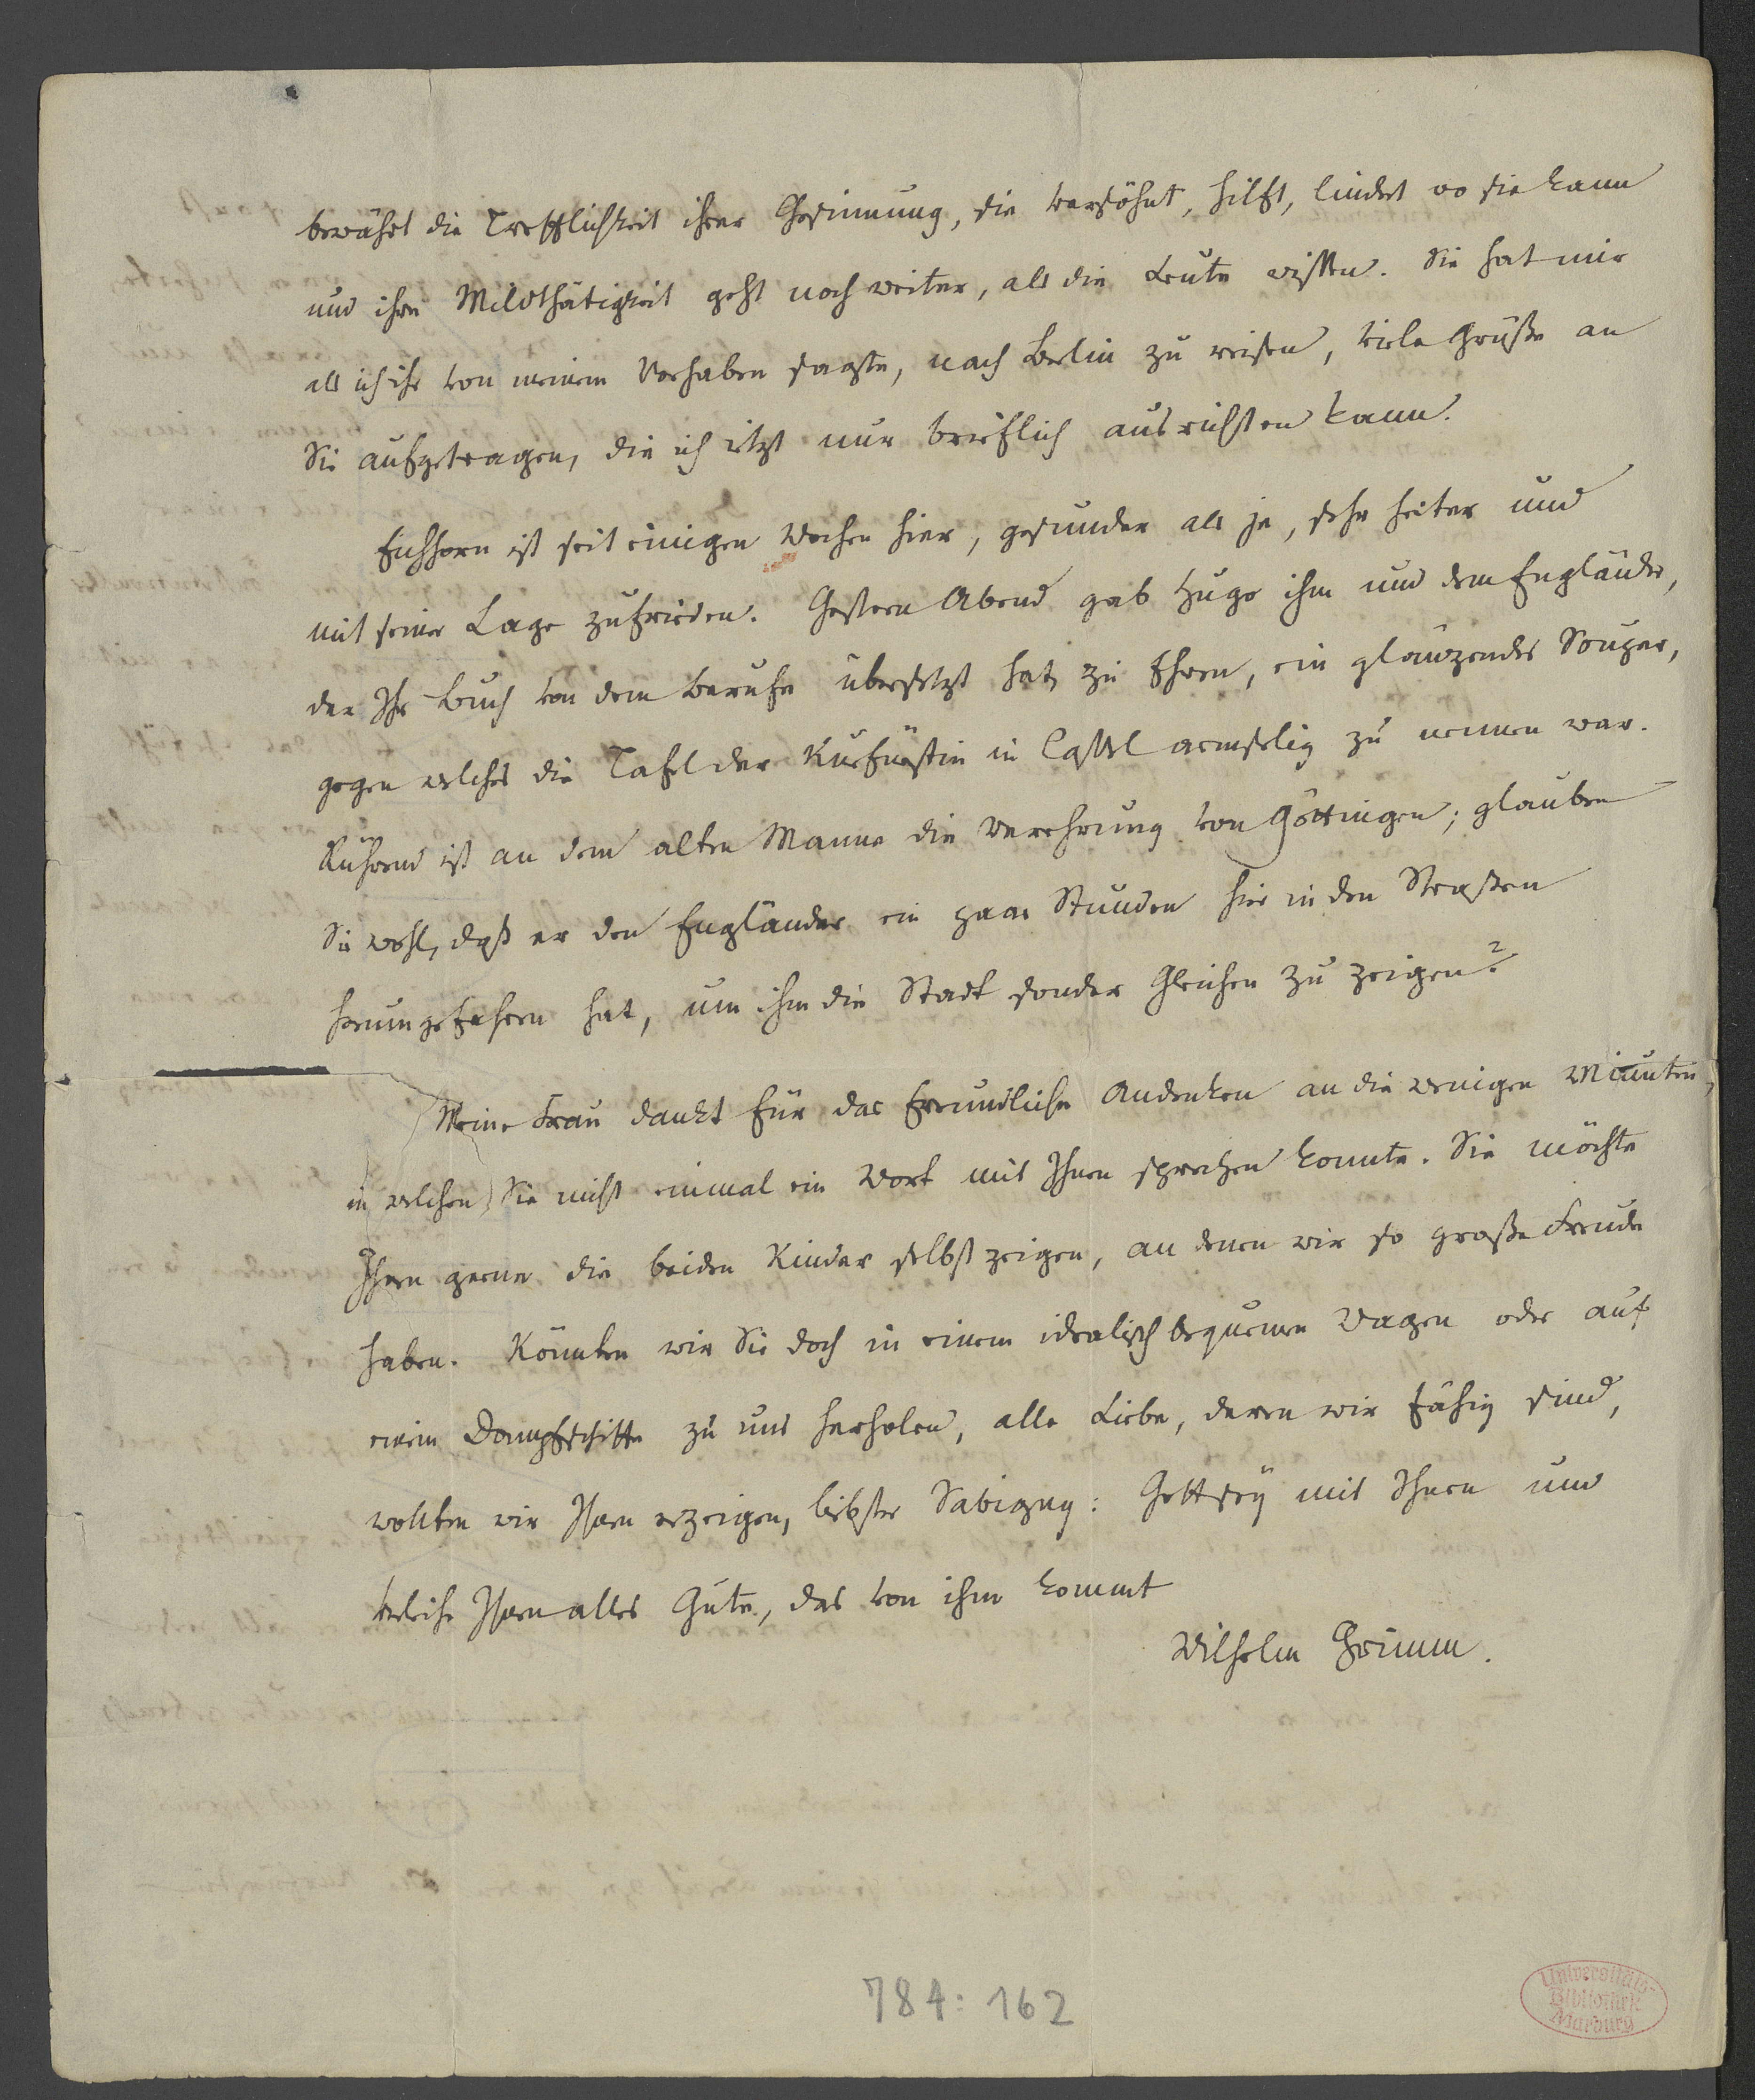 bewährt die Trefflichkeit ihrer Gesinnung, sie versöhnt, hilft, lindert wo sie kann
und ihre Mildthätigkeit geht noch weiter, als die Leute wissen. Sie hat mir
als ich ihr von meinem Vorhaben sagte, nach Berlin zu reisen, viele Grüße an
Sie aufgetragen, die ich itzt nur brieflich ausrichten kann.
Eichhorn ist seit einigen Wochen hier, gesunder als je, sehr heiter und
mit seiner Lage zufrieden. Gestern Abend gab Hugo ihm und dem Engländer,
der Ihr Buch von dem Berufe übersetzt hat, zu Ehren, ein glänzendes Souper,
gegen welches die Tafel der Kurfürstin in Cassel armselig zu nennen war.
Rührend ist an dem alten Manne die Verehrung von Göttingen; glauben
Sie wohl, daß er den Engländer ein paar Stunden hier in den Straßen
herumgefahren hat, um ihm die Stadt sonder Gleichen zu zeigen?
Meine Frau dankt für das freundliche Andenken an die wenigen Minuten,
in welchen Sie nicht einmal ein Wort mit Ihnen sprechen konnte. Sie möchte
Ihnen gerne die beiden Kinder selbst zeigen, an denen wir so große Freude
haben. Könnten wir Sie doch in einem idealisch bequemen Wagen oder auf
einem Dampfschiffe zu uns herholen, alle Liebe, deren wir fähig sind,
wollten wir Ihnen erzeigen, liebster Savigny: Gott sey mit Ihnen und
verleihe Ihnen alles Gute, das von ihm kommt
Wilhelm Grimm.
784: 162
Universitäts-
Bibliothek
Marburg